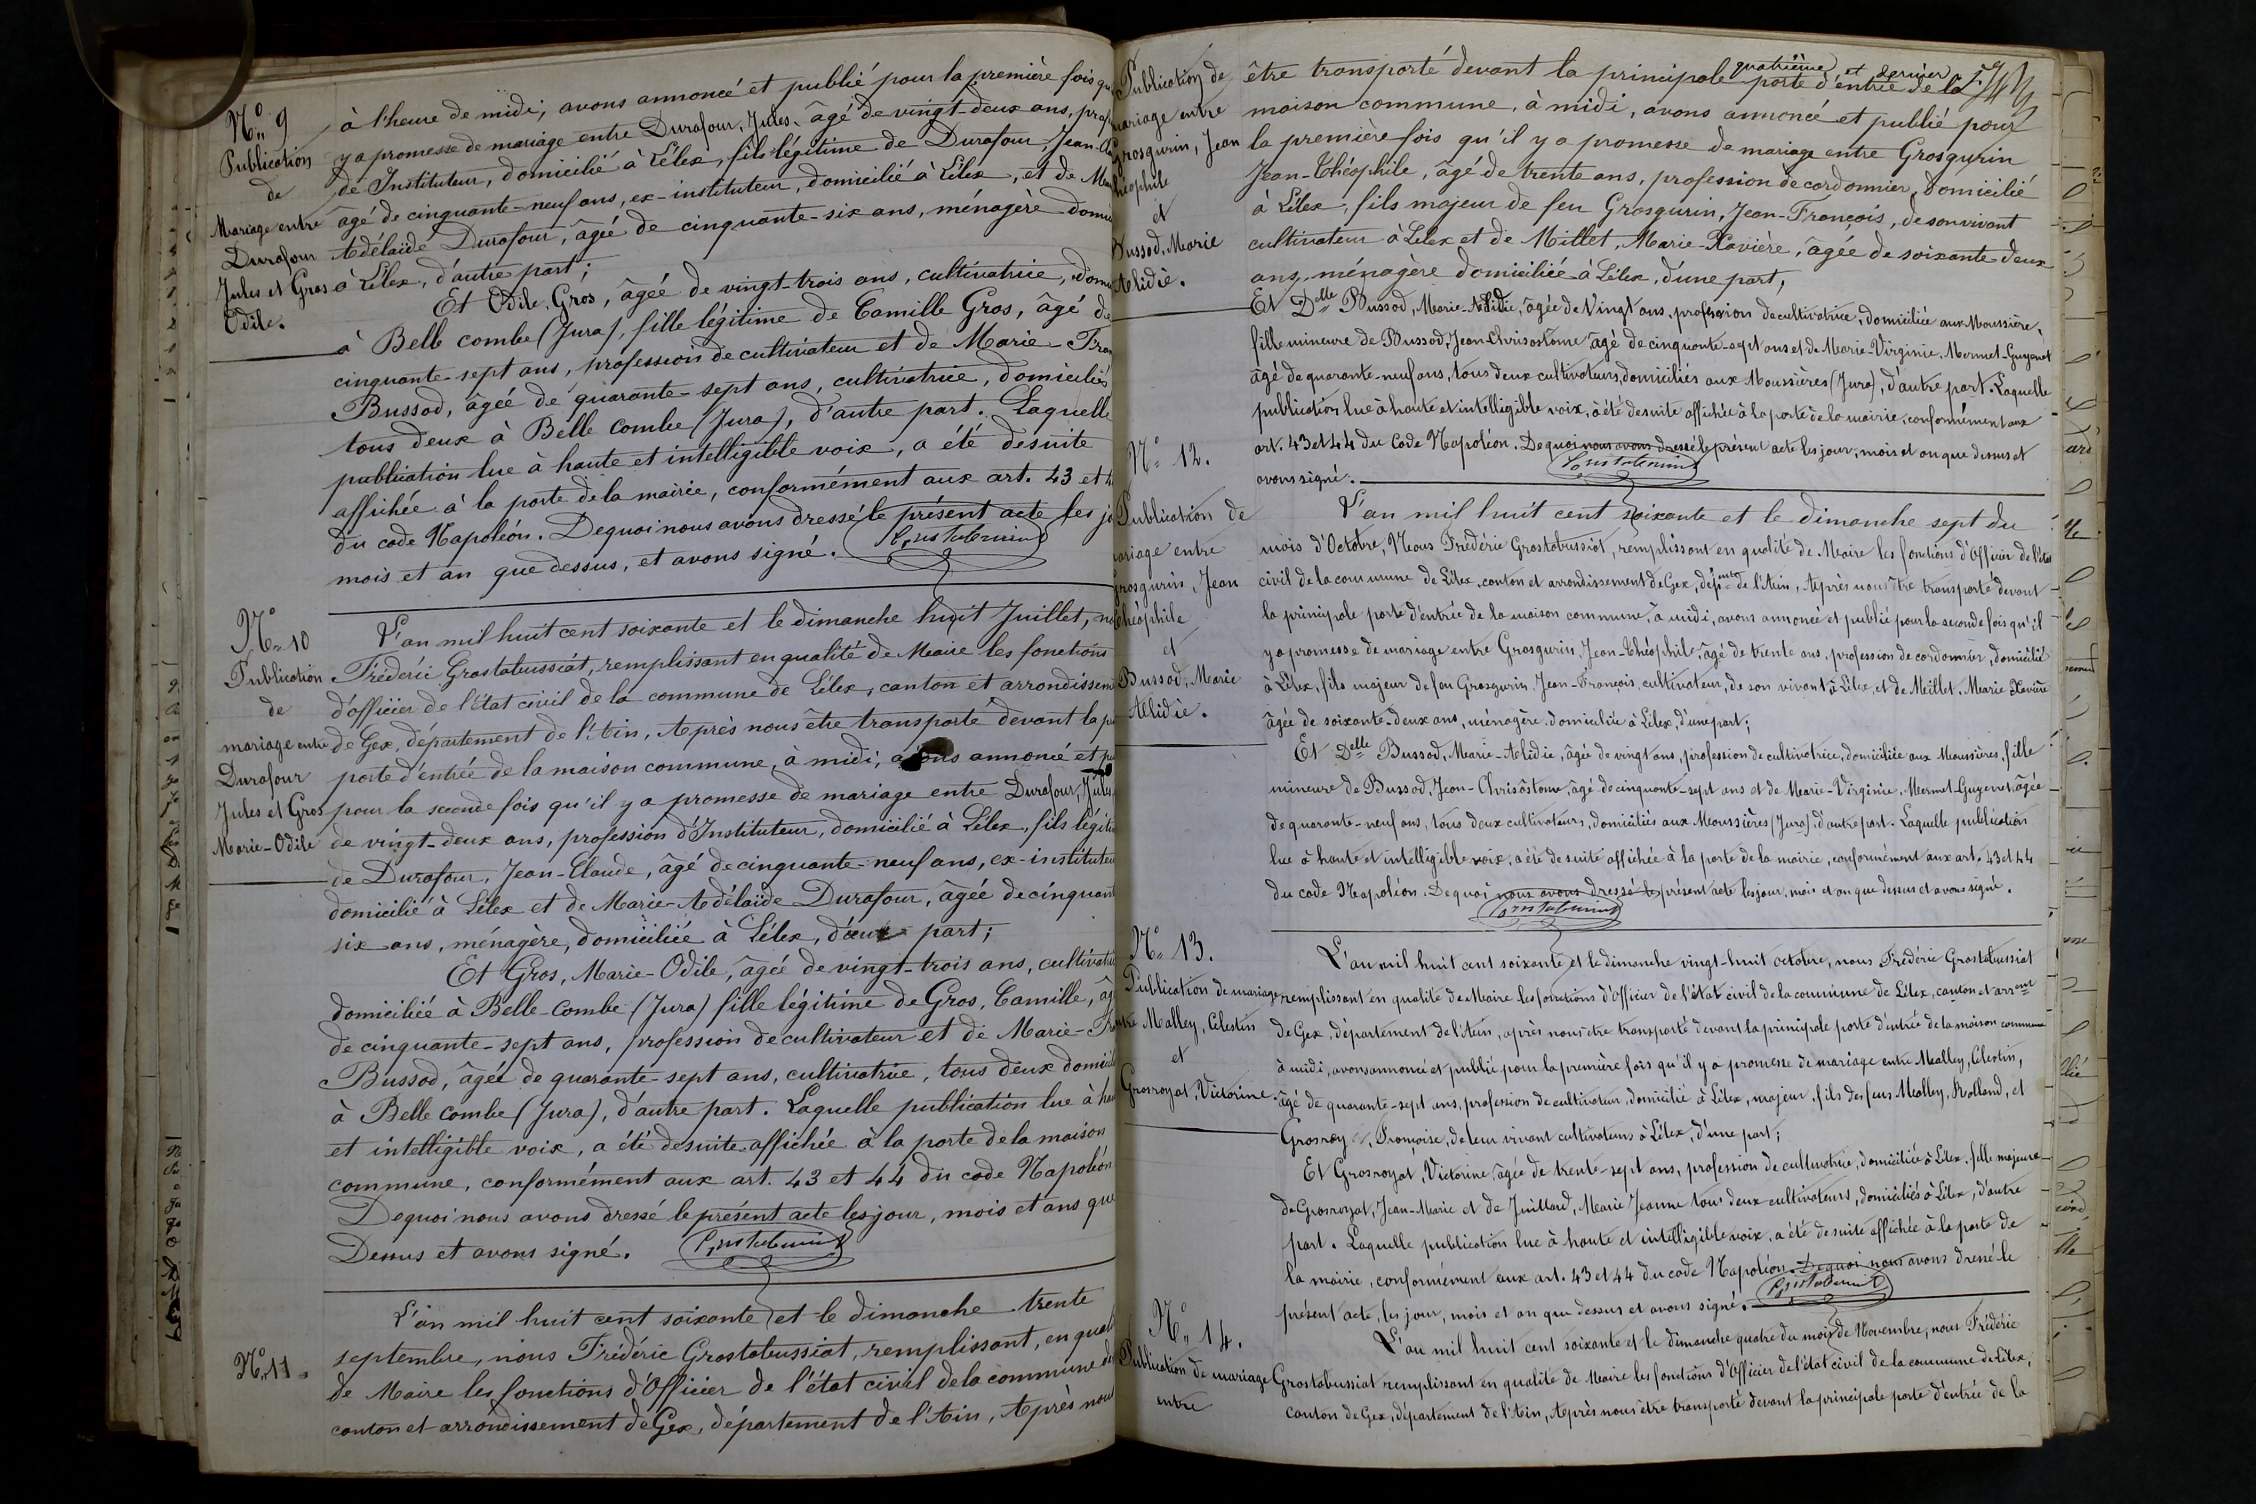 N° 9
Publication
de
Mariage entre
Durafour
Jules et Gros
Odile.
à l'heure de midi; avons annoncé et publié pour la première fois qu
y a promesse de mariage entre Durafour, Jules, âgé de vingt-deux ans, prof
de Instituteur, domicilié à Lélex, fils légitime de Durafour, Jean-
âgé de cinquante-neuf ans, ex-instituteur, domicilié à Lélex, et de Ma
Adélaïde Durafour, âgée de cinquante-six ans, ménagère domi
à Lélex, d'autre part;
Et Odile Gros, âgée de vingt-trois ans, cultivatrice, domi
à Belle combe (Jura), fille légitime de Camille Gros, âgé de
cinquante-sept ans, profession de cultivateur et de Marie-Fran
Bussod, âgée de quarante-sept ans, cultivatrice, domiciliés
tous deux à Belle combe (Jura), d'autre part. Laquelle
publication lue à haute et intelligible voix, a été desuite
affichée à la porte de la mairie, conformément aux art. 43 et 4
du code Napoléon. Dequoi nous avons dressé le présent acte les jo
mois et an que dessus, et avons signé.
N° 10
Publication
de
mariage entre
Durafour
Jules et Gros
Marie-Odile
L'an mil huit cent soixante et le dimanche huit Juillet, no
Frédéric Grostabussiat, remplissant en qualité de Maire les fonctions
d'officier de l'état civil de la commune de Lélex, canton et arrondissem
de Gex, département de l'Ain, Après nous être transporté devant la p
porte d'entrée de la maison commune, à midi, avons annoncé et pu
pour la seconde fois qu'il y a promesse de mariage entre Durafour, Jules
de vingt-deux ans, profession d'Instituteur, domicilié à Lélex, fils légiti
de Durafour, Jean-Claude, âgé de cinquante-neuf ans, ex-instituteu
domicilié à Lélex et de Marie-Adélaïde Durafour, âgée de cinquant
six ans, ménagère, domiciliée à Lélex, d'une part;
Et Gros, Marie-Odile, âgée de vingt-trois ans, cultivatri
domiciliée à Belle-Combe (Jura) fille légitime de Gros, Camille, âg
de cinquante-sept ans, profession de cultivateur et de Marie-Fr
Bussod, âgée de quarante-sept ans, cultivatrice, tous deux domicili
à Belle combe (Jura), d'autre part. Laquelle publication lue à hau
et intelligible voix, a été desuite affichée à la porte de la maison
commune, conformément aux art. 43 et 44 du code Napoléon
Dequoi nous avons dressé le présent acte les jour, mois et ans que
Dessus et avons signé.
N° 11.
L'an mil huit cent soixante et le dimanche trente
septembre, nous Frédéric Grostabussiat, remplissant, en quali
de Maire les fonctions d'Officier de l'état civil de la commune de
canton et arrondissement de Gex, département de l'Ain, Après nous
quatrième et dernier
Publication de
mariage entre
Grosgurin, Jean
Théophile
et
Bussod, Marie
Alidie.
être transporté devant la principale porte d'entrée de la
maison commune, à midi, avons annoncé et publié pour
la première fois qu'il y a promesse de mariage entre Grosgurin
Jean-Théophile, âgé de trente ans, profession de cordonnier, domicilié
à Lélex, fils majeur de feu Grosgurin, Jean-François, de son vivant
cultivateur à Lélex et de Millet, Marie-Xavière, âgée de soixante-deux
ans, ménagère domiciliée à Lélex, d'une part,
Et Delle Bussod, Marie-Alidie, âgée de Vingt ans, profession de cultivatrice, domiciliée aux Moussière,
fille mineure de Bussod, Jean-Chrisostome âgé de cinquante-sept ans et de Marie-Virginie, Mermet-Guyenet
âgé de quarante-neuf ans, tous deux cultivateurs, domiciliés aux Moussières (Jura), d'autre part. Laquelle
publication lue à haute et intelligible voix, a été desuite affichée à la porte de la mairie, conformément aux
art. 43 et 44 du Code Napoléon. Dequoi nous avons dressé le présent acte les jour, mois et an que dessus et
avons signé.
N° 12.
Publication de
mariage entre
Grosgurin, Jean
Théophile
et
Bussod, Marie
Alidie.
L'an mil huit cent soixante et le dimanche sept du
mois d'Octobre, Nous Frédéric Grostabussiat, remplissant en qualité de Maire les fonctions d'Officier de l'état
civil de la commune de Lélex, canton et arrondissement de Gex, dépment de l'Ain, Après nous être transporté devant
la principale porte d'entrée de la maison commune, à midi, avons annoncé et publié pour la seconde fois qu'il
y a promesse de mariage entre Grosgurin, Jean-Théophile, âgé de trente ans, profession de cordonnier, domicilié
à Lélex, fils majeur de feu Grosgurin, Jean-François, cultivateur, de son vivant à Lélex, et de Millet, Marie Xavière
âgée de soixante-deux ans, ménagère domiciliée à Lélex, d'une part;
Et Delle Bussod, Marie-Alidie, âgée de vingt ans, profession de cultivatrice, domiciliée aux Moussières, fille
mineure de Bussod, Jean-Chrisôstome, âgé de cinquante-sept ans et de Marie-Virginie, Mermet-Guyenet, âgée
de quarante-neuf ans, tous deux cultivateurs, domiciliés aux Moussières (Jura), d'autre part. Laquelle publication
lue à haute et intelligible voix, a été desuite affichée à la porte de la mairie, conformément aux art. 43 et 44
du code Napoléon. Dequoi nous avons dressé le présent acte les jour, mois et an que dessus et avons signé.
N° 13.
Publication de mariage
entre Malley, Célestin
et
Grosroyat, Victorine.
L'an mil huit cent soixante et le dimanche vingt-huit octobre, nous Frédéric Grostabussiat
remplissant en qualité de Maire les fonctions d'Officier de l'état civil de la commune de Lélex, canton et arrent
de Gex, département de l'Ain, après nous être transporté devant la principale porte d'entrée de la maison commune
à midi, avons annoncé et publié pour la première fois qu'il y a promesse de mariage entre Malley, Célestin,
âgé de quarante-sept ans, profession de cultivateur, domicilié à Lélex, majeur, fils des feus Malley, Rolland, et
Grosroy, Françoise, de leur vivant cultivateurs à Lélex, d'une part;
Et Grosroyat, Victorine, âgée de trente-sept ans, profession de cultivatrice, domiciliée à Lélex, fille majeure
de Grosroyat, Jean-Marie et de Juillard, Marie Jeanne tous deux cultivateurs, domiciliés à Lélex, d'autre
part. Laquelle publication lue à haute et intelligible voix, a été desuite affichée à la porte de
la mairie, conformément aux art. 43 et 44 du code Napoléon. Dequoi nous avons dressé le
présent acte, les jour, mois et an que dessus et avons signé.
N° 14.
Publication de mariage
entre
L'an mil huit cent soixante et le dimanche quatre du mois de Novembre, nous Frédéric
Grostabussiat remplissant en qualité de Maire les fonctions d'Officier de l'état civil de la commune de Lélex,
canton de Gex, département de l'Ain, Après nous être transporté devant la principale porte d'entrée de la